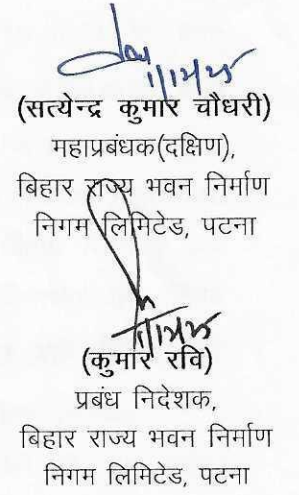 1/12/25
(सत्येन्द्र कुमार चौधरी)
महाप्रबंधक(दक्षिण),
बिहार राज्य भवन निर्माण
निगम लिमिटेड, पटना
1/12/25
(कुमार रवि)
प्रबंध निदेशक,
बिहार राज्य भवन निर्माण
निगम लिमिटेड, पटना